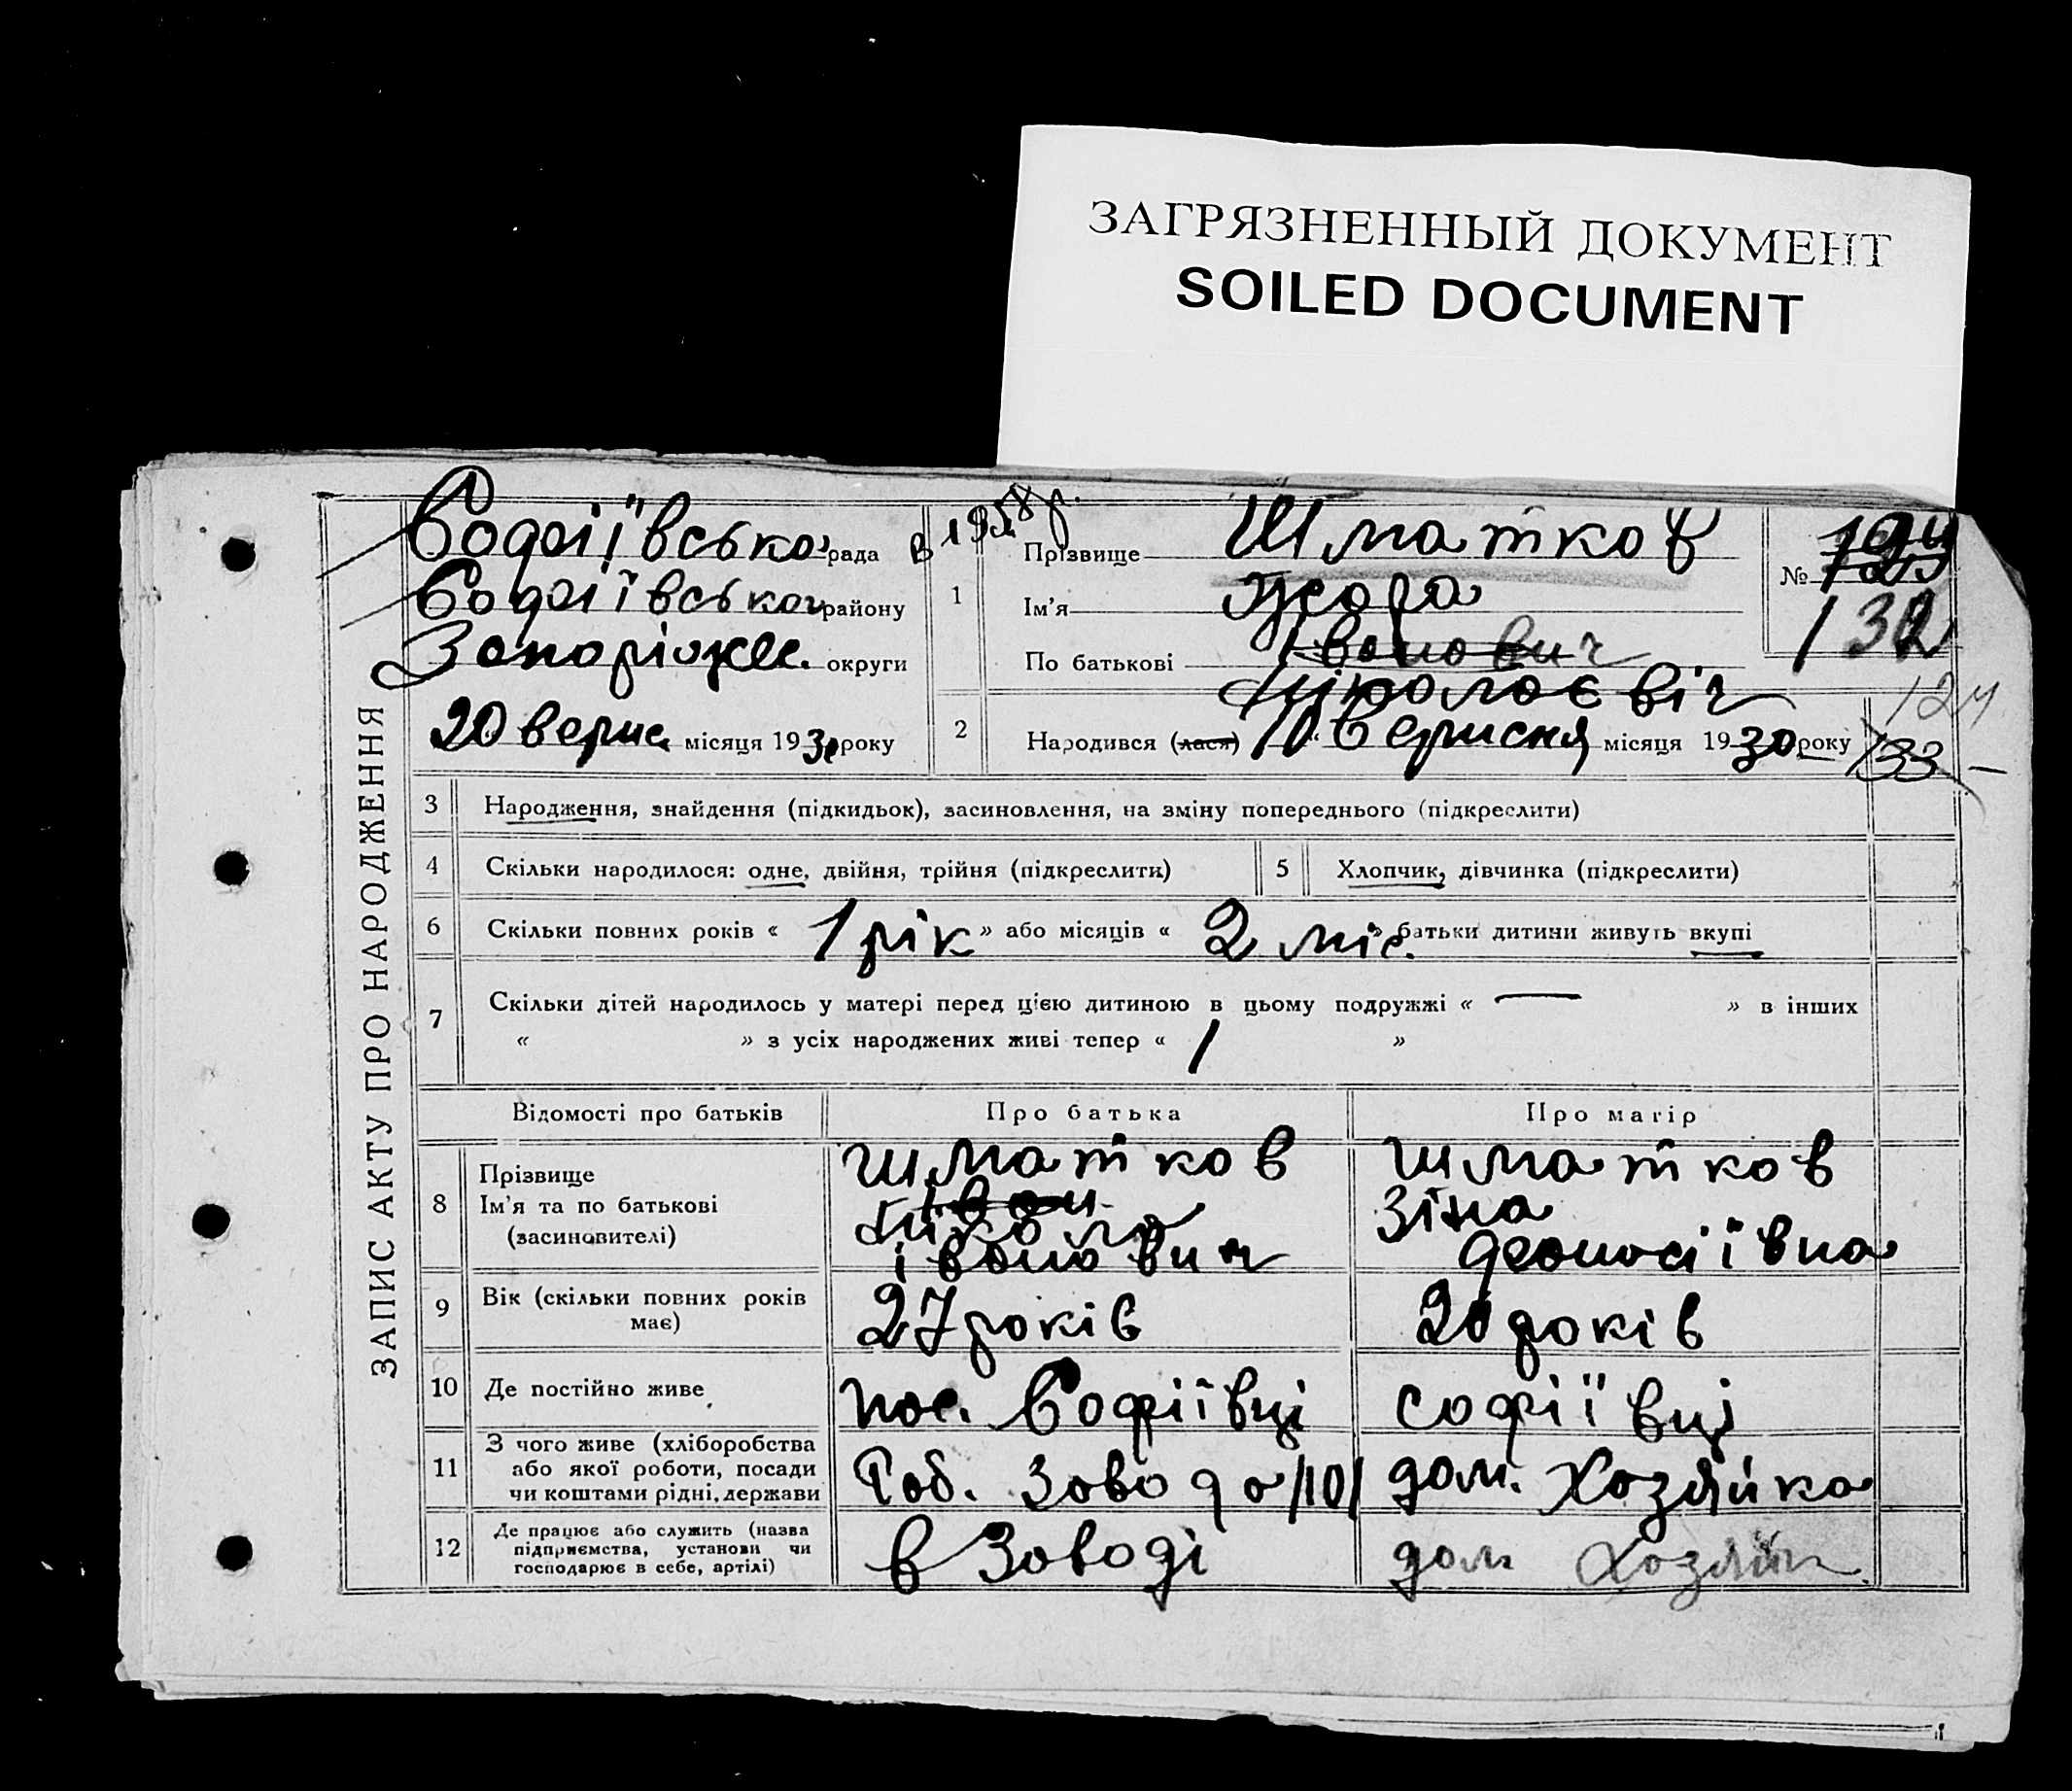 ЗАГРЯЗНЕННЫЙ ДОКУМЕНТ
SOILED DOCUMENT
ЗАПИС АКТУ ПРО НАРОДЖЕННЯ
Софіївсько рада
Софіївськог району
Запоріжж. округи
20 верис. місяця 1930 року
1
Прізвище Шматков
Ім'я Жора
По батькові Іванович
Ніколаєвіч
№
132
124
133
2 Народився (лася) 10 Верисня місяця 1930 року
3 Народження, знайдення (підкидьок), засиновлення, на зміну попереднього (підкреслити)
4 Скільки народилося: одне, двійня, трійня (підкреслити)
5 Хлопчик, дівчинка (підкреслити)
6 Скільки повних років « 1 рік » або місяців « 2 міс. » батьки дитини живуть вкупі
7 Скільки дітей народилось у матері перед цією дитиною в цьому подружжі « — » в інших
« » з усіх народжених живі тепер « 1 »
Відомості про батьків
Про батька
Про матір
8 Прізвище
Ім'я та по батькові
(засиновителі)
Шматков
Іван
Нікола
Іванович
Шматков
Зіна
9 Вік (скільки повних років
має)
27 років
20 років
10 Де постійно живе
пос. Софіївці
Софіївці
11 З чого живе (хліборобства
або якої роботи, посади
чи коштами рідні, держави
Роб. Завода
дом. Хозяйка
12 Де працює або служить (назва
підприємства, установи чи
господарює в себе, артілі)
в Заводі
дом Хозяйк